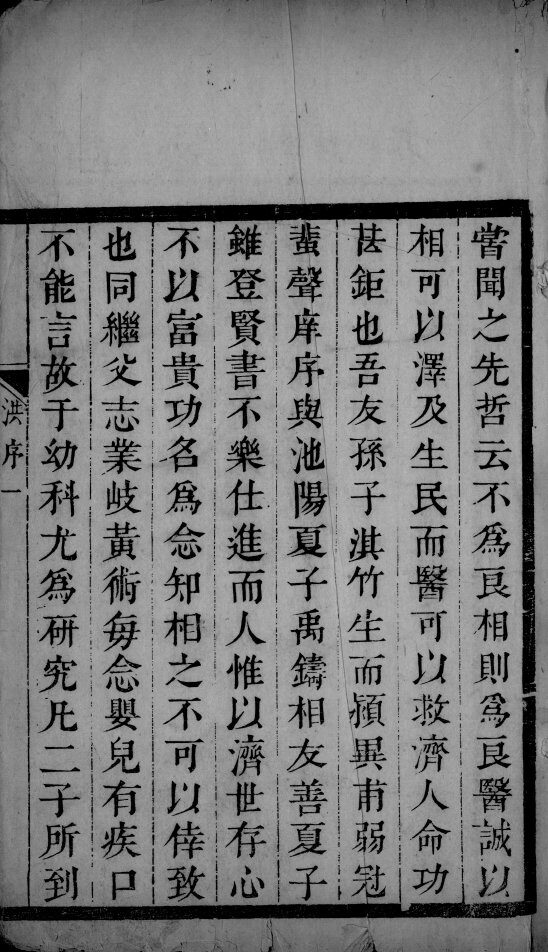 嘗聞之先哲云不為良相則為良醫誠以
相可以澤及生民而醫可以救濟人命功
甚鉅也吾友孫子淇竹生而頴異甫弱冠
蜚聲庠序與池陽夏子禹鑄相友善夏子
雖登賢書不樂仕進而人惟以濟世存心
不以富貴功名為念知相之不可以倖致
也同繼父志業岐黃術每念嬰兒有疾口
不能言故于幼科尤為研究凡二子所到
洪序一